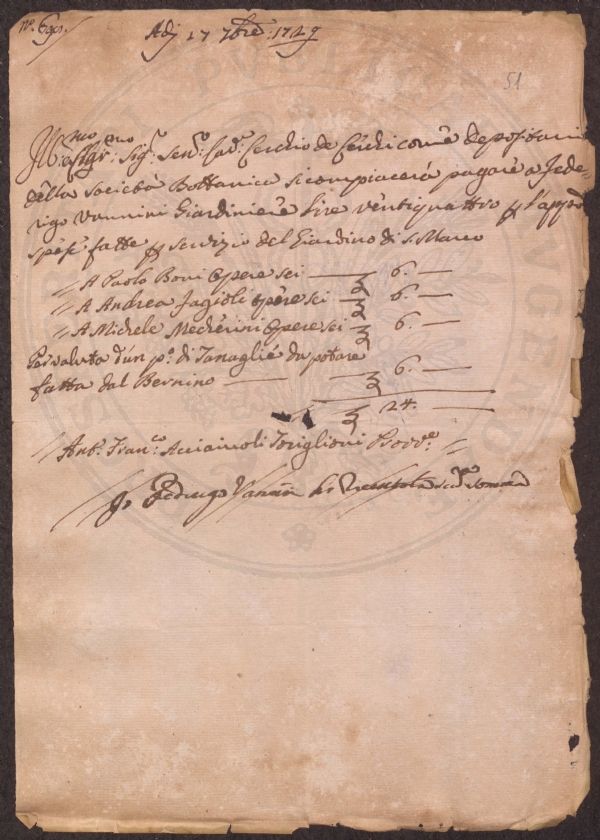 Adj 17 7bre: 1749
51
Illmo Sigr: Sigr Senre Cavre Cerchio de Cerchi come Depositario
della Società Bottanica si compiacerà pagare a Fede=
rigo Vannini Giardiniere lire ventiquattro p l'appo
spese fatte p servizio del Giardino di S. Marco
// A Paolo Boni Opere sei — 6. —
// A Andrea Fagioli Opere sei — 6. —
// A Michele Mecherini Opere sei — 6. —
Per valuta d'un po: di Tanaglie da potare
fatta dal Bernino — 6. —
24. —
Anto: Franco: Acciaiuoli Toriglioni Provre:
Io Federigo Vannini ho somma